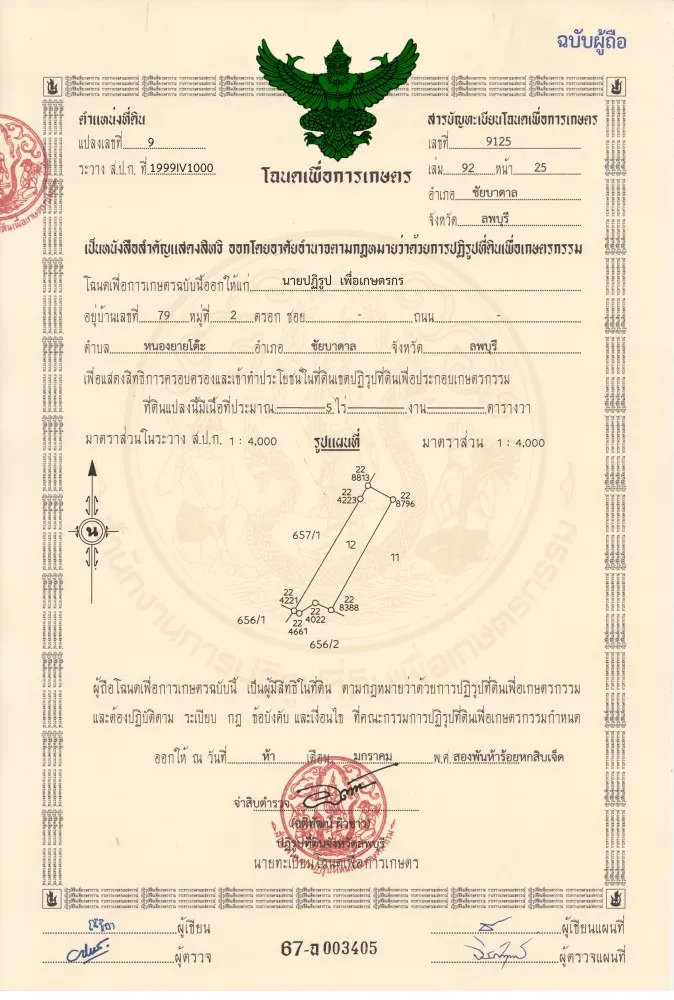 ฉบับผู้ถือ
ตำแหน่งที่ดิน
แปลงเลขที่ 9
ระวาง ส.ป.ก. ที่ 1999IV1000
โฉนดเพื่อการเกษตร
สารบัญทะเบียนโฉนดเพื่อการเกษตร
เลขที่ 9125
เล่ม 92 หน้า 25
อำเภอ ชัยบาดาล
จังหวัด ลพบุรี
เป็นหนังสือสำคัญแสดงสิทธิ ออกโดยอาศัยอำนาจตามกฎหมายว่าด้วยการปฏิรูปที่ดินเพื่อเกษตรกรรม
โฉนดเพื่อการเกษตรฉบับนี้ออกให้แก่ นายปฏิรูป เพื่อเกษตรกร
อยู่บ้านเลขที่ 79 หมู่ที่ 2 ตรอก ซอย - ถนน -
ตำบล หนองยายโต๊ะ อำเภอ ชัยบาดาล จังหวัด ลพบุรี
เพื่อแสดงสิทธิการครอบครองและเข้าทำประโยชน์ในที่ดินเขตปฏิรูปที่ดินเพื่อประกอบเกษตรกรรม
ที่ดินแปลงนี้มีเนื้อที่ประมาณ 5 ไร่ งาน ตารางวา
มาตราส่วนในระวาง ส.ป.ก. 1 : 4,000 รูปแผนที่ มาตราส่วน 1 : 4,000
22
8813
22
4223
22
8796
657/1
12
11
น
22
4221
22
8388
22
4022
22
4661
656/1
656/2
ผู้ถือโฉนดเพื่อการเกษตรฉบับนี้ เป็นผู้มีสิทธิในที่ดิน ตามกฎหมายว่าด้วยการปฏิรูปที่ดินเพื่อเกษตรกรรม
และต้องปฏิบัติตาม ระเบียบ กฎ ข้อบังคับ และเงื่อนไข ที่คณะกรรมการปฏิรูปที่ดินเพื่อเกษตรกรรมกำหนด
ออกให้ ณ วันที่ ห้า เดือน มกราคม พ.ศ. สองพันห้าร้อยหกสิบเจ็ด
จ่าสิบตำรวจ
ปฏิรูปที่ดินจังหวัดลพบุรี
นายทะเบียนโฉนดเพื่อการเกษตร
ผู้เขียน
ผู้ตรวจ
67-ฉ 003405
ผู้เขียนแผนที่
ผู้ตรวจแผนที่